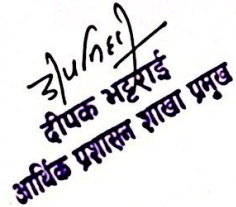 दीपक भट्टराई
आर्थिक प्रशासन शाखा प्रमुख